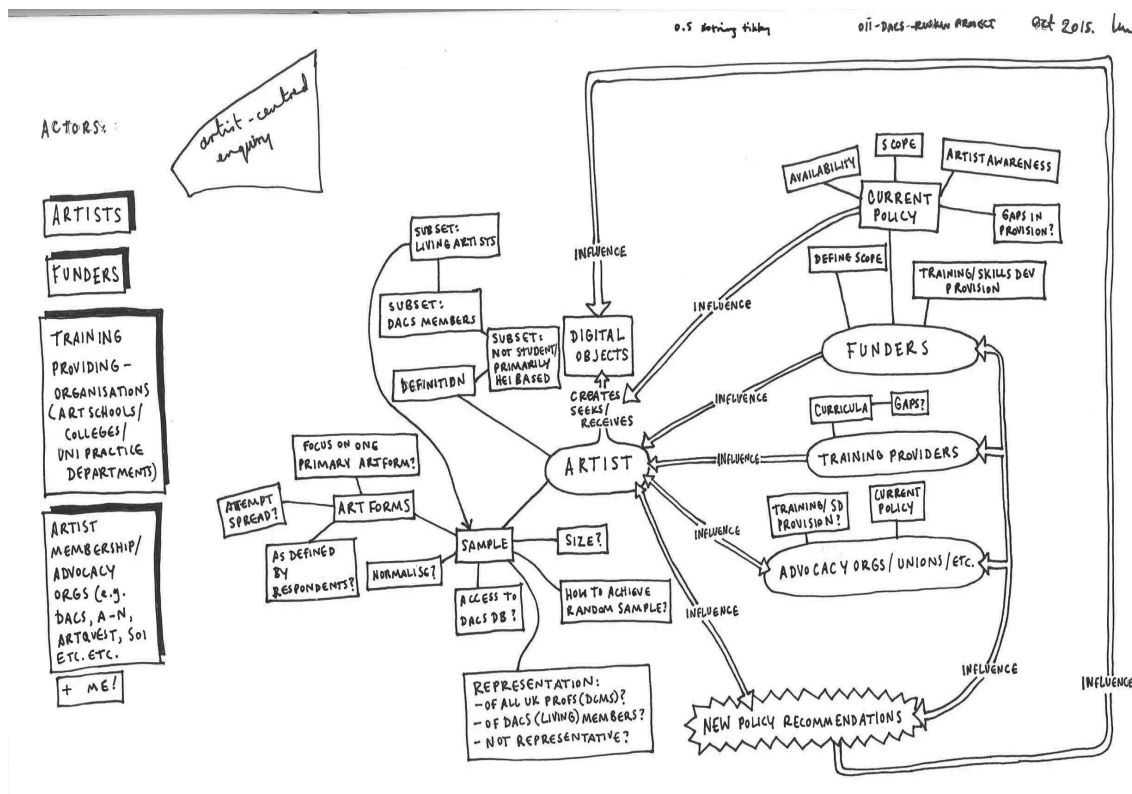 0.5
OII-DACS-RUSKIN PROJECT
Oct 2015.
artist-centred
enquiry
ACTORS:
ARTISTS
FUNDERS
TRAINING
PROVIDING-
ORGANISATIONS
(ART SCHOOLS/
COLLEGES/
UNI PRACTICE
DEPARTMENTS)
ARTIST
MEMBERSHIP/
ADVOCACY
ORGS (e.g.
DACS, A-N,
ARTQUEST, SOI
ETC. ETC.
+ ME!
SUBSET:
LIVING ARTISTS
SUBSET:
DACS MEMBERS
SUBSET:
NOT STUDENT/
PRIMARILY
HEI BASED
DEFINITION
FOCUS ON ONE
PRIMARY ARTFORM?
ATTEMPT
SPREAD?
ART FORMS
AS DEFINED
BY
RESPONDENTS?
NORMALISE?
SAMPLE
SIZE?
ACCESS TO
DACS DB?
HOW TO ACHIEVE
RANDOM SAMPLE?
REPRESENTATION:
- OF ALL UK PROFS (DCMS)?
- OF DACS (LIVING) MEMBERS?
- NOT REPRESENTATIVE?
INFLUENCE
DIGITAL
OBJECTS
CREATES
SEEKS/
RECEIVES
ARTIST
SCOPE
AVAILABILITY
ARTIST AWARENESS
CURRENT
POLICY
GAPS IN
PROVISION?
INFLUENCE
DEFINE SCOPE
TRAINING/SKILLS DEV
PROVISION
FUNDERS
INFLUENCE
CURRICULA
GAPS?
TRAINING PROVIDERS
INFLUENCE
TRAINING/SD
PROVISION?
CURRENT
POLICY
ADVOCACY ORGS/UNIONS/ETC.
INFLUENCE
INFLUENCE
INFLUENCE
INFLUENCE
NEW POLICY RECOMMENDATIONS